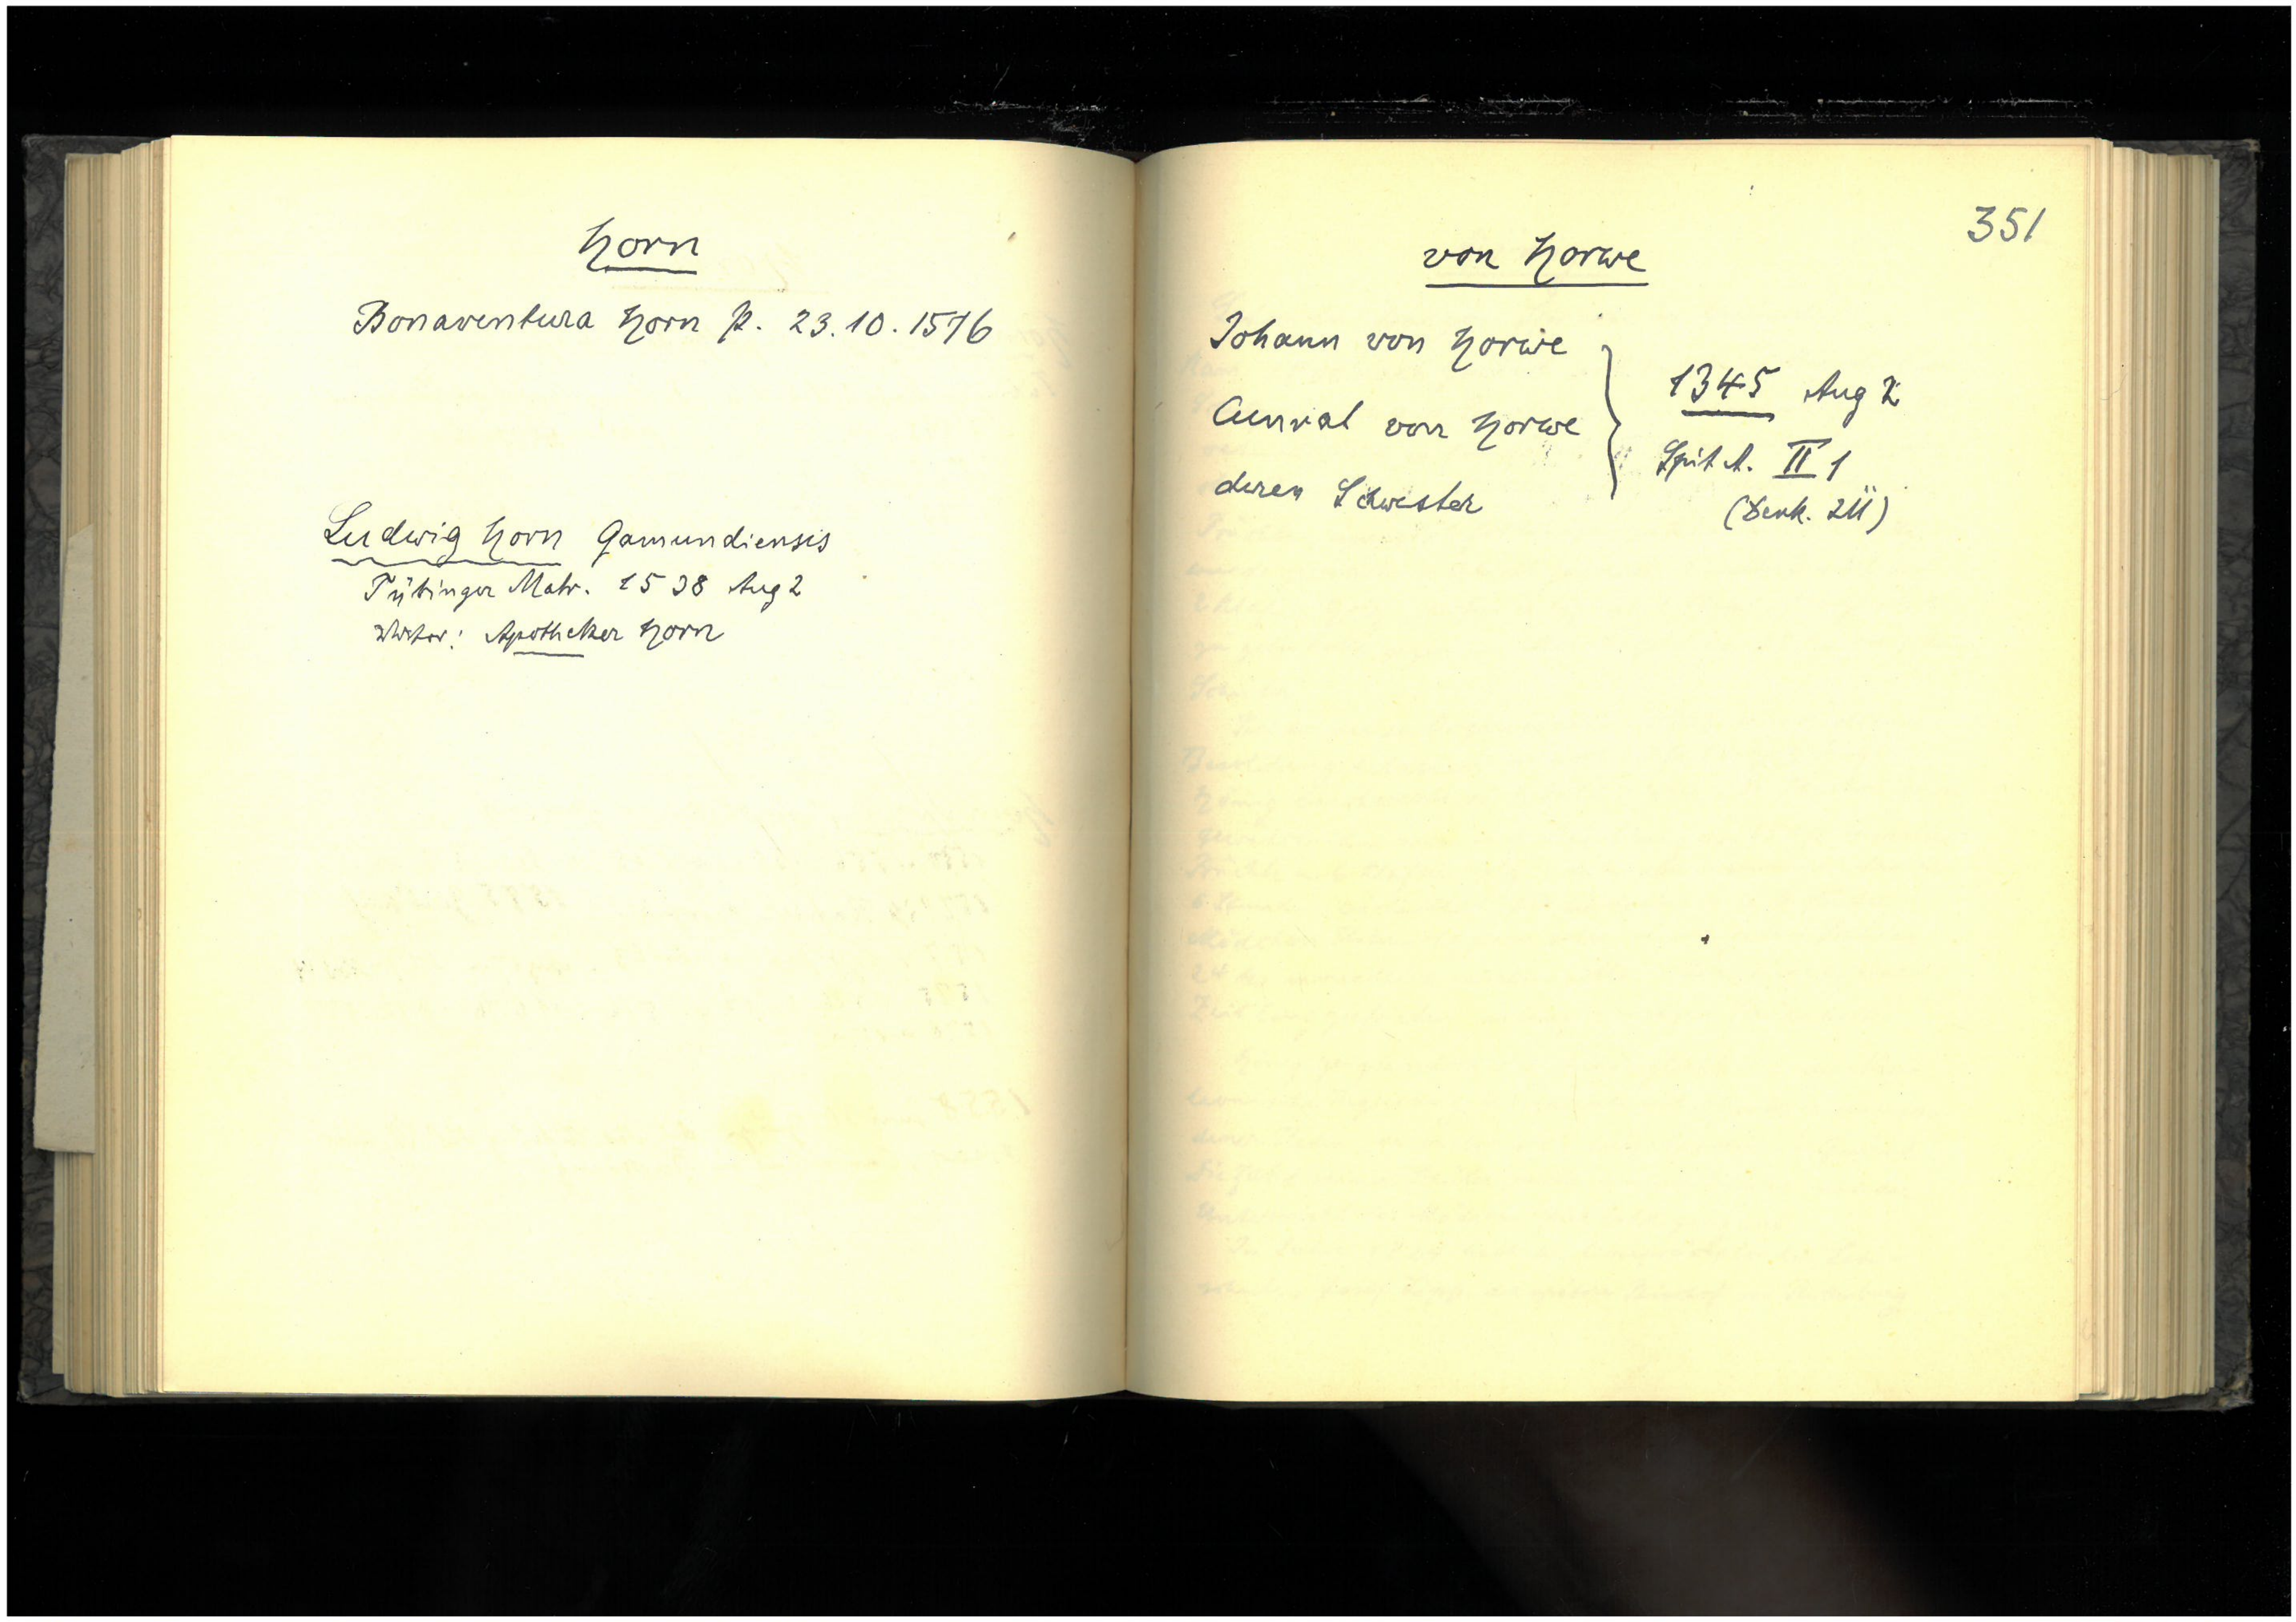 Horn
Bonaventura Horn p. 23.10.1576
Ludwig Horn Gamundiensis
Tübinger Matr. 1538 Aug 2
Apotheker Horn
351
von Horwe
Johann von Horwe
Cunrat von Horwe
deren Schwester
1345 Aug 2
Spit A. II 1
(Denk. 211)